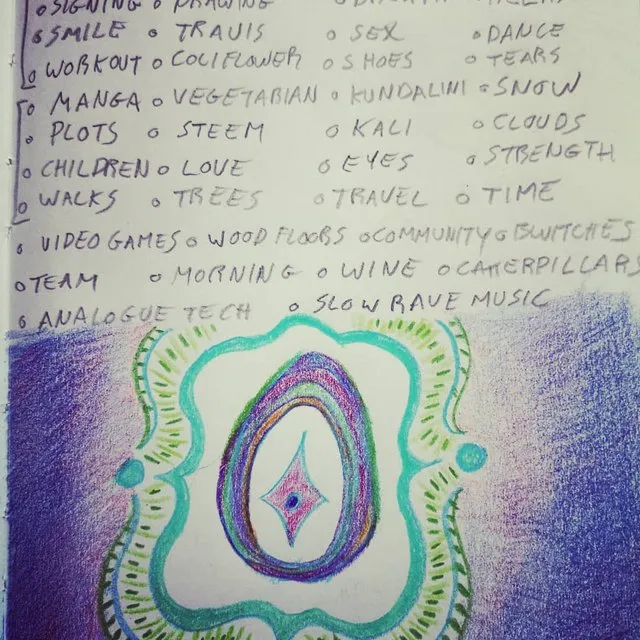 SIGNING o DRAWING
o SMILE o TRAVIS o SEX o DANCE
o WORKOUT o COLIFLOWER o SHOES o TEARS
o MANGA o VEGETARIAN o KUNDALINI o SNOW
o PLOTS o STEEM o KALI o CLOUDS
o CHILDREN o LOVE o EYES o STRENGTH
o WALKS o TREES o TRAVEL o TIME
o VIDEO GAMES o WOOD FLOORS o COMMUNITY o BWITCHES
o TEAM o MORNING o WINE o CATERPILLARS
o ANALOGUE TECH o SLOW RAVE MUSIC